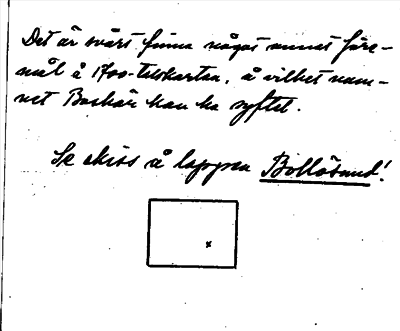 Det är svårt finna något annat före-
mål å 1700-talskartan, å vilket nam-
net Backär kan ha syftet.
Se skiss å lappen Bollösund!